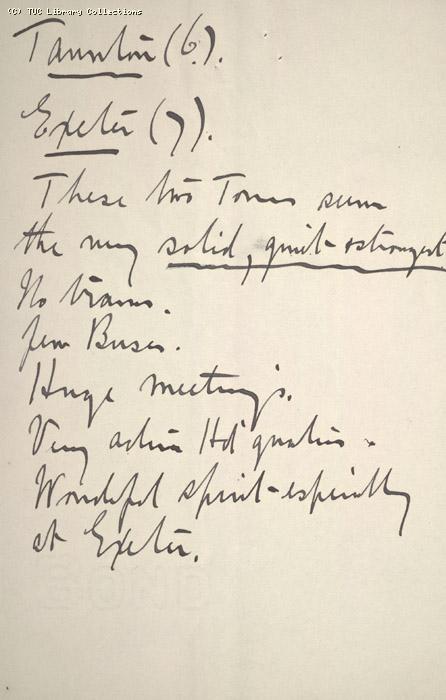 (C) TUC Library Collections
Taunton (6).
Exeter (7).
These two Towns seem
the very solid, quiet & strongest
No trams.
few Buses.
Huge meetings.
Very active Hd quarters.
Wonderful spirit - especially
at Exeter.